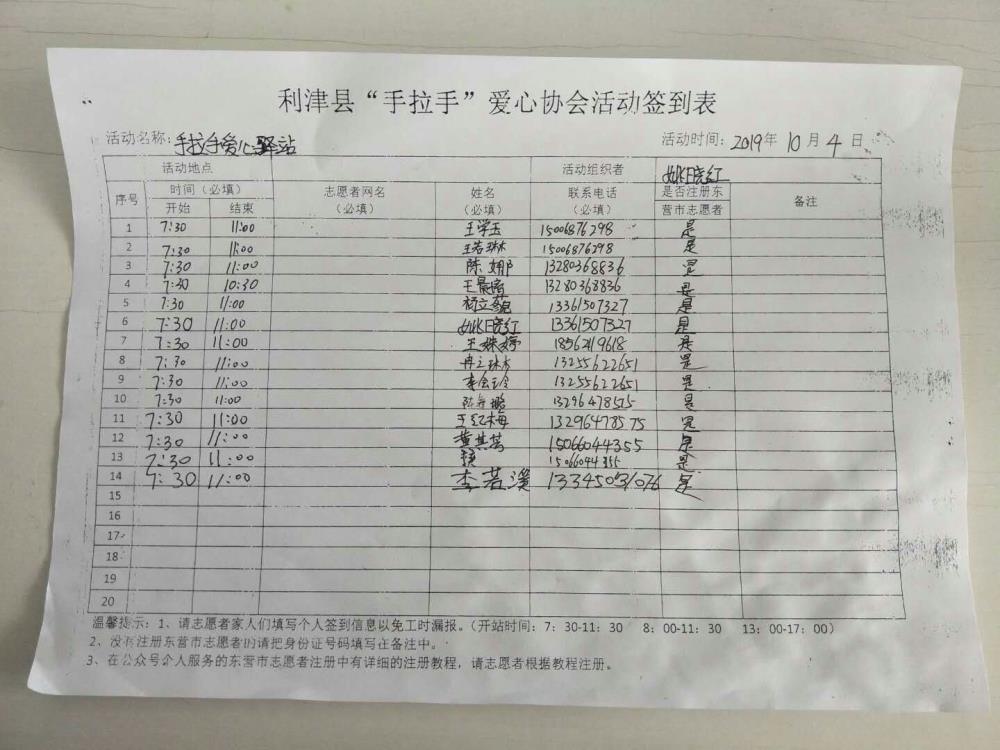 利津县“手拉手”爱心协会活动签到表
活动名称：手拉手爱心驿站 活动时间：2019年10月4日
活动地点 活动组织者 姚晓红
序号 时间（必填） 志愿者网名（必填） 姓名（必填） 联系电话（必填） 是否注册东营市志愿者 备注
开始 结束
1 7:30 11:00 王学玉 15006876298 是
2 7:30 11:00 王若琳 15006876298 是
3 7:30 11:00 陈娜 13280368836 是
4 7:30 10:30 王晨 13280368836 是
5 7:30 11:00 杨立 13361507327 是
6 7:30 11:00 姚晓红 13361507327 是
7 7:30 11:00 王姝婷 1856219618 是
8 7:30 11:00 冉 13255622651 是
9 7:30 11:00 李会玲 13255622651 是
10 7:30 11:00 是
11 7:30 11:00 王红梅 13296478575 是
12 7:30 11:00 黄其 15066044355 是
13 7:30 11:00 15066044355 是
14 7:30 11:00 李若溪 是
15
16
17
18
19
20
温馨提示：1、请志愿者家人们填写个人签到信息以免工时漏报。（开站时间：7：30-11：30 8：00-11：30 13：00-17：00）
2、没有注册东营市志愿者的请把身份证号码填写在备注中。
3、在公众号个人服务的东营市志愿者注册中有详细的注册教程，请志愿者根据教程注册。